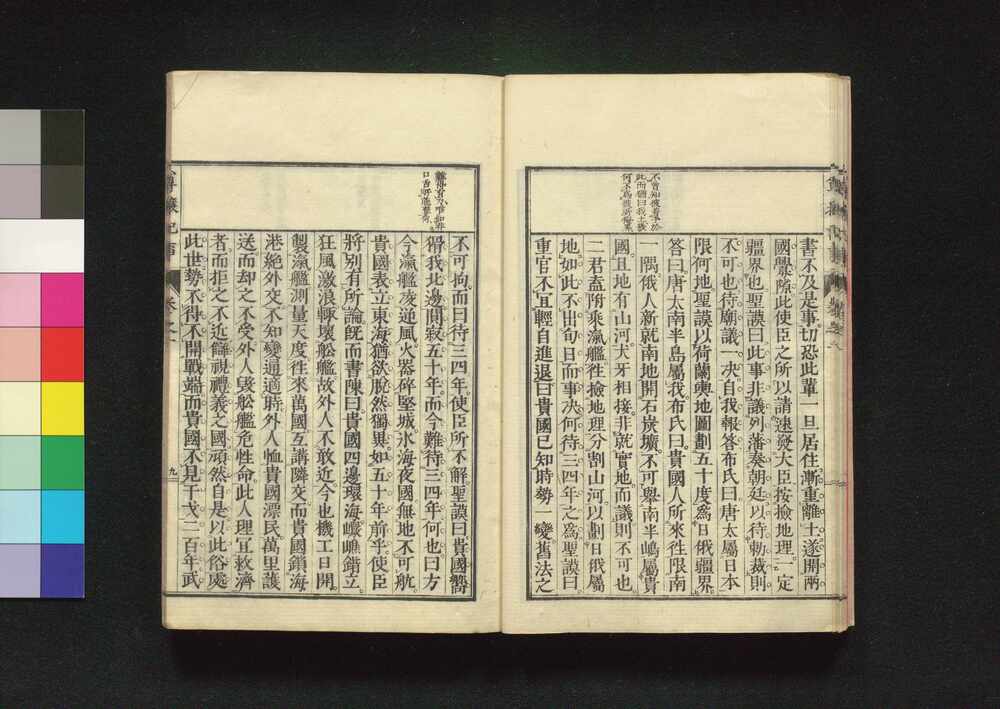 不曾知彼着手於
此而猶曰我土彼
書不及是事切恐此輩一旦居住漸重離土遂開兩
國釁隙此使臣之所以請速發大臣按撿地理一定
疆界也聖謨曰此事非議列藩奏朝廷以待勅裁則
不可也待廟議一决自我報答布氏曰唐太屬日本
限何地聖謨以荷蘭輿地圖劃五十度爲日俄疆界
答曰唐太南半島屬我布氏曰貴國人所來往限南
一隅俄人新就南地開石炭壙不可擧南半嶋屬貴
國且地有山河犬牙相接非就實地而議則不可也
二君盍附乘瀛艦徃撿地理分割山河以劃日俄屬
地如此不出旬日而事决何待三四年之爲聖謨曰
重官不冝輕自進退曰貴國已知時勢一變舊法之
不可拘而曰待三四年使臣所不解聖謨曰貴國嚮
得我北邊閴寂五十年而今難待三四年何也曰方
今瀛艦凌逆風火器碎堅城氷海夜國無地不可航
貴國表立東海猶欲脫然獨異如五十年前乎使臣
將別有所論旣而書陳曰貴國四邊環海巉嶕錯立
狂風激浪輙壞舩艦故外人不敢近今也機工日開
製瀛艦測量天度往來萬國互講隣交而貴國鎖海
港絶外交不知變通適時外人恤貴國漂民萬里護
送而却之不受外人毀舩艦危性命此人理冝救濟
者而拒之不近讎視禮義之國頑然自是以此俗處
此世勢不得不開戰端而貴國不見干戈二百年武
卷之一
九